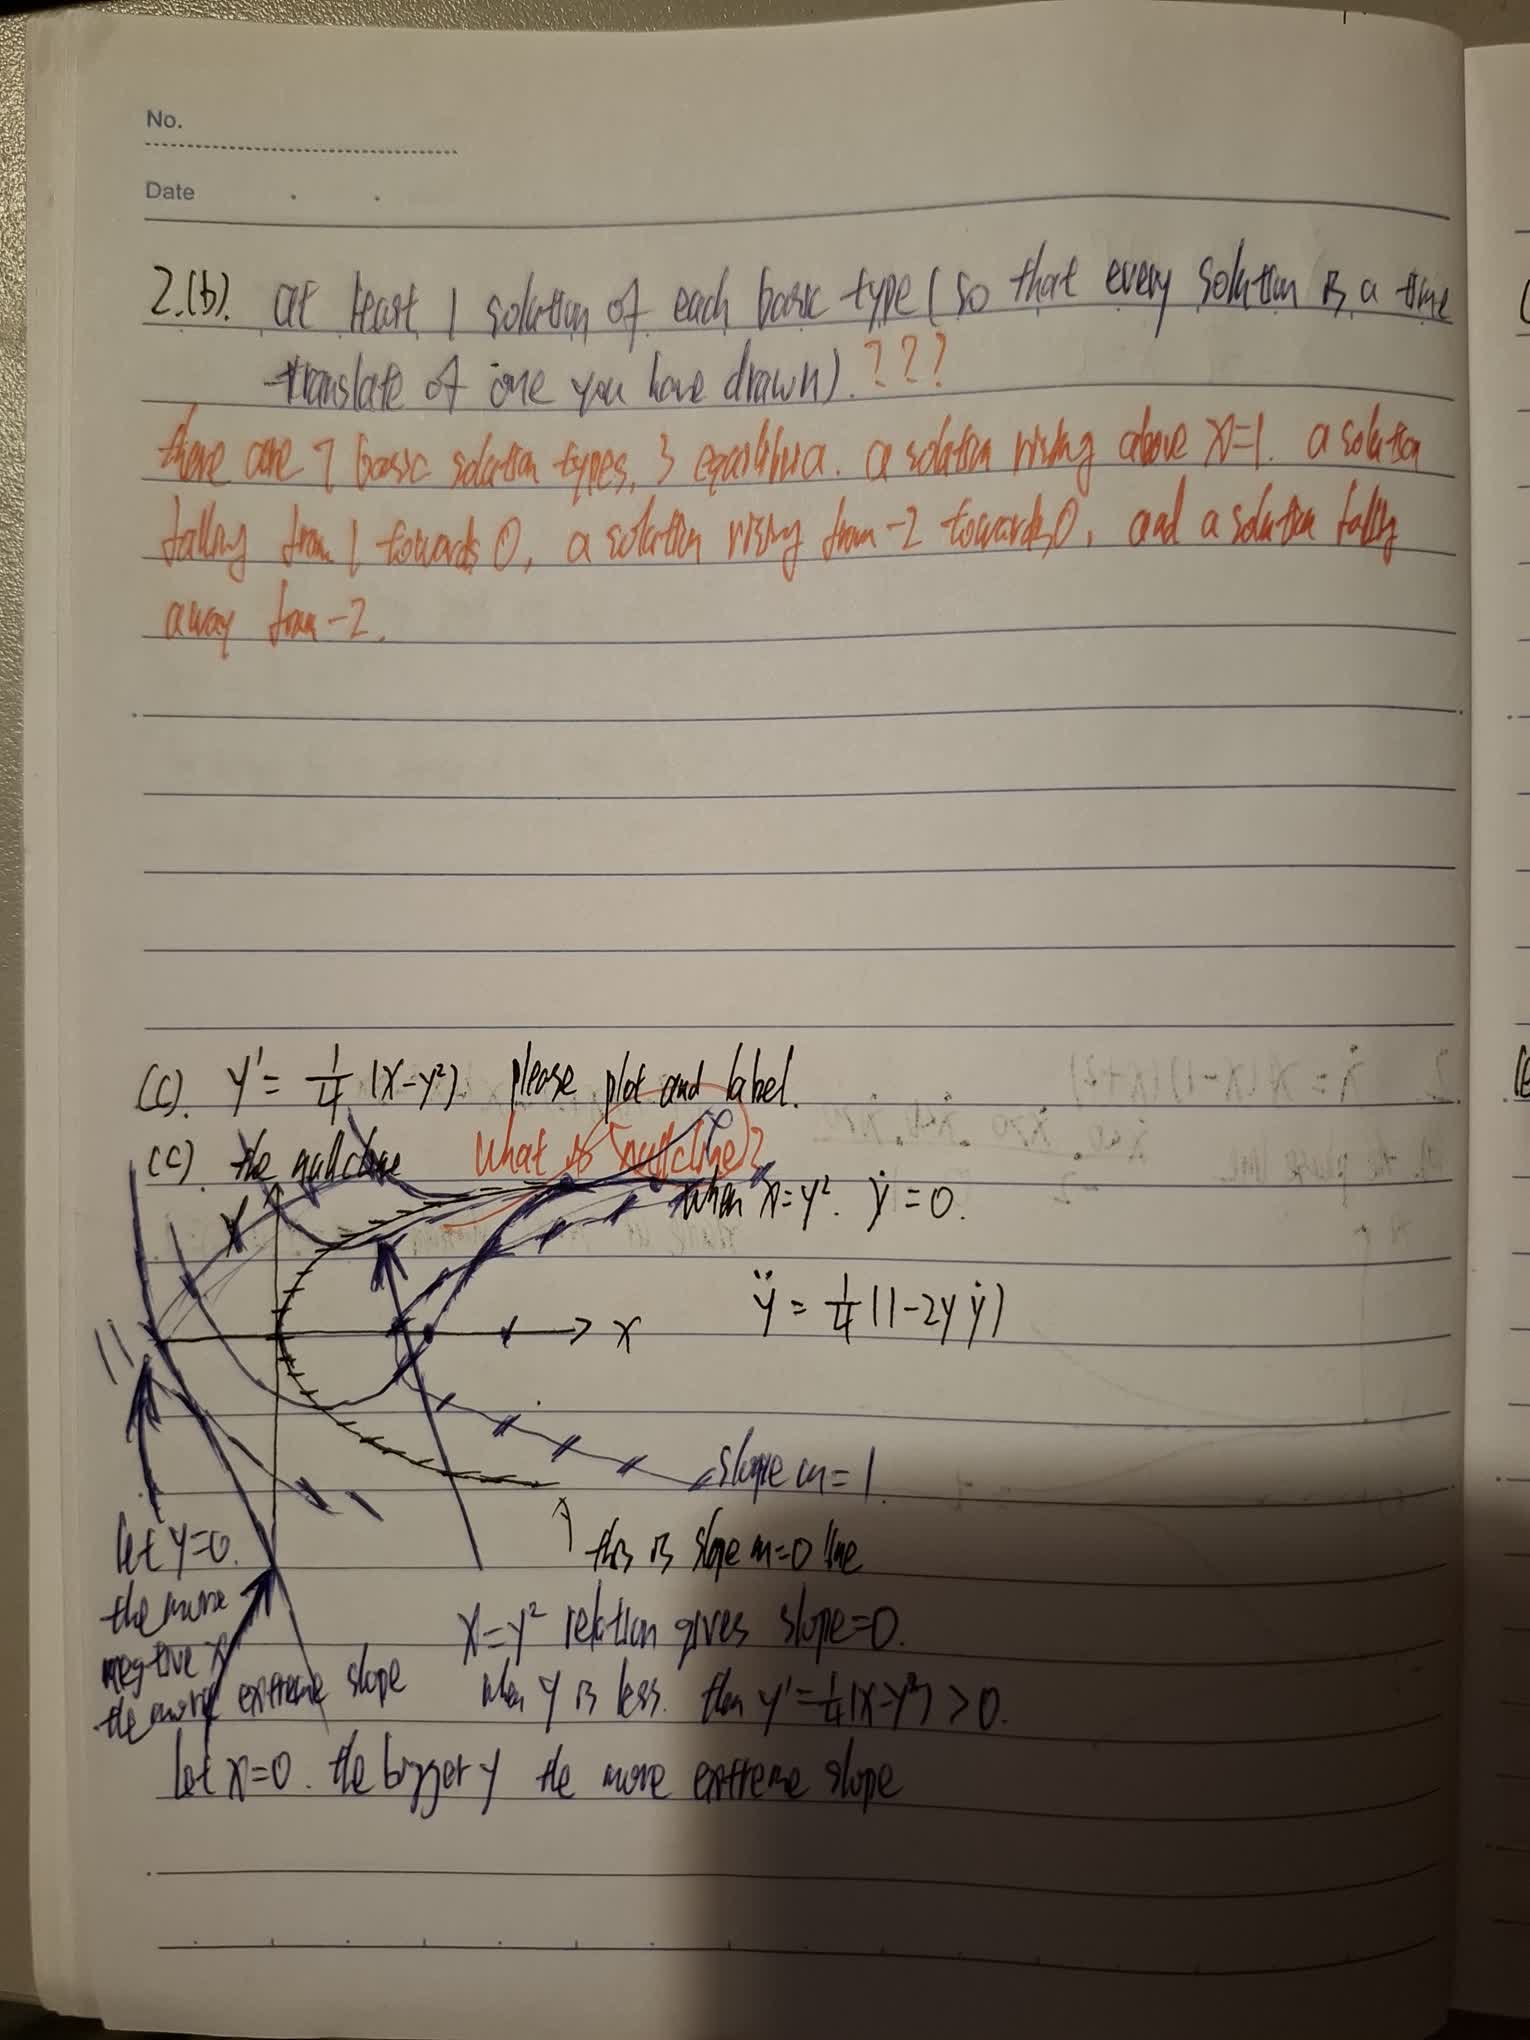 No.
Date
2.(b). at least 1 solution of each basic type (so that every solution is a time
translate of one you have drawn). ???
there are 7 basic solution types, 3 equilibria. a solution rising above x=1. a solution
falling from 1 towards 0, a solution rising from -2 towards 0, and a solution falling
away from -2.
(c). y' = 1/4 (x-y²). please plot and label.
(c). the nullcline What is "nullcline"?
when x=y². ẏ=0.
y
x
ÿ = 1/4 (1-2yẏ)
slope m=1.
let y=0.
this is slope m=0 line
the more
negative x
the more extreme slope
x=y² relation gives slope=0.
when y is less. then y'=1/4(x-y²)>0.
let x=0. the bigger y the more extreme slope